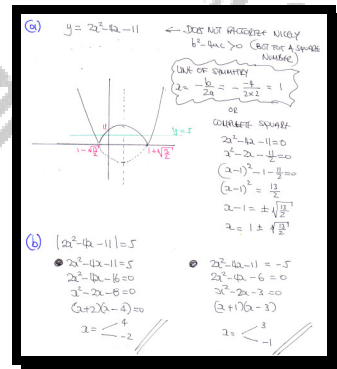 (a) y = 2x²-4x-11 ← DOES NOT FACTORIZE NICELY
b²-4ac > 0 (BUT NOT A SQUARE NUMBER)
LINE OF SYMMETRY
x = -b/2a = - -4/2×2 = 1
OR
COMPLETE SQUARE
2x²-4x-11=0
x²-2x-11/2=0
(x-1)²-1-11/2=0
(x-1)² = 13/2
x-1 = ±√13/2
x = 1 ± √13/2
11
y=5
1-√13/2
1+√13/2
(b) |2x²-4x-11|=5
2x²-4x-11=5
2x²-4x-16=0
x²-2x-8=0
(x+2)(x-4)=0
x= 4
-2
2x²-4x-11 = -5
2x²-4x-6=0
x²-2x-3=0
(x+1)(x-3)
x= 3
-1